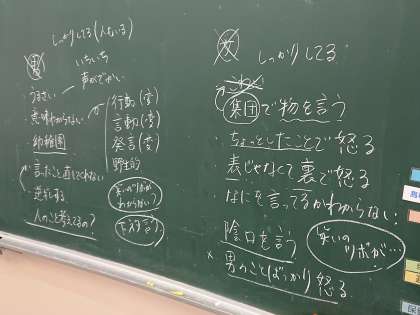 男
しっかりしてる(人もいる)
いちいち
声がでかい
・うるさい
・意味わからない
・幼稚園
・言ったこと直してくれない
・逆ギレする
・人のこと考えてるの?
行動(変)
言動(変)
発言(変)
野生的
笑いのツボが
わからない?
下ネタ言う
女
しっかりしてる
こわい
集団で物を言う
ちょっとしたことで怒る
表じゃなくて裏で怒る
なにを言ってるかわからない
陰口を言う
笑いの
ツボが…
× 男のことばっかり怒る